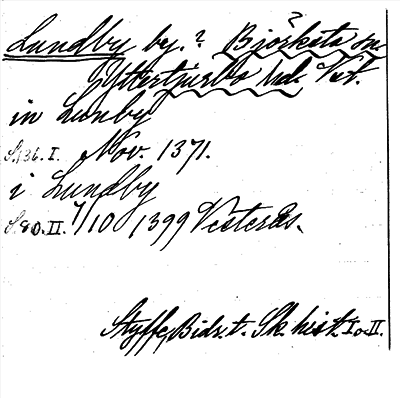 ?
Lundby by.? Björksta sn.
Yttertjurbo hd. Vst.
in Lunby
S.136.I. Nov. 1371.
i Lundby
S.80.II. 7/10 1399 Vesterås.
Styffe, Bidr. t. Sk. hist. I o. II.